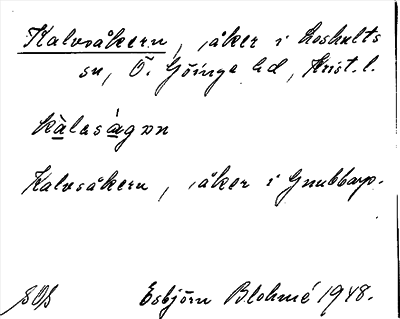 Kalvsåkern, åker i Loshults
sn, Ö. Göinge hd, Krist. l.
Kalvsåkern, åker i Gnubbarp.
Esbjörn Blohmé 1948.